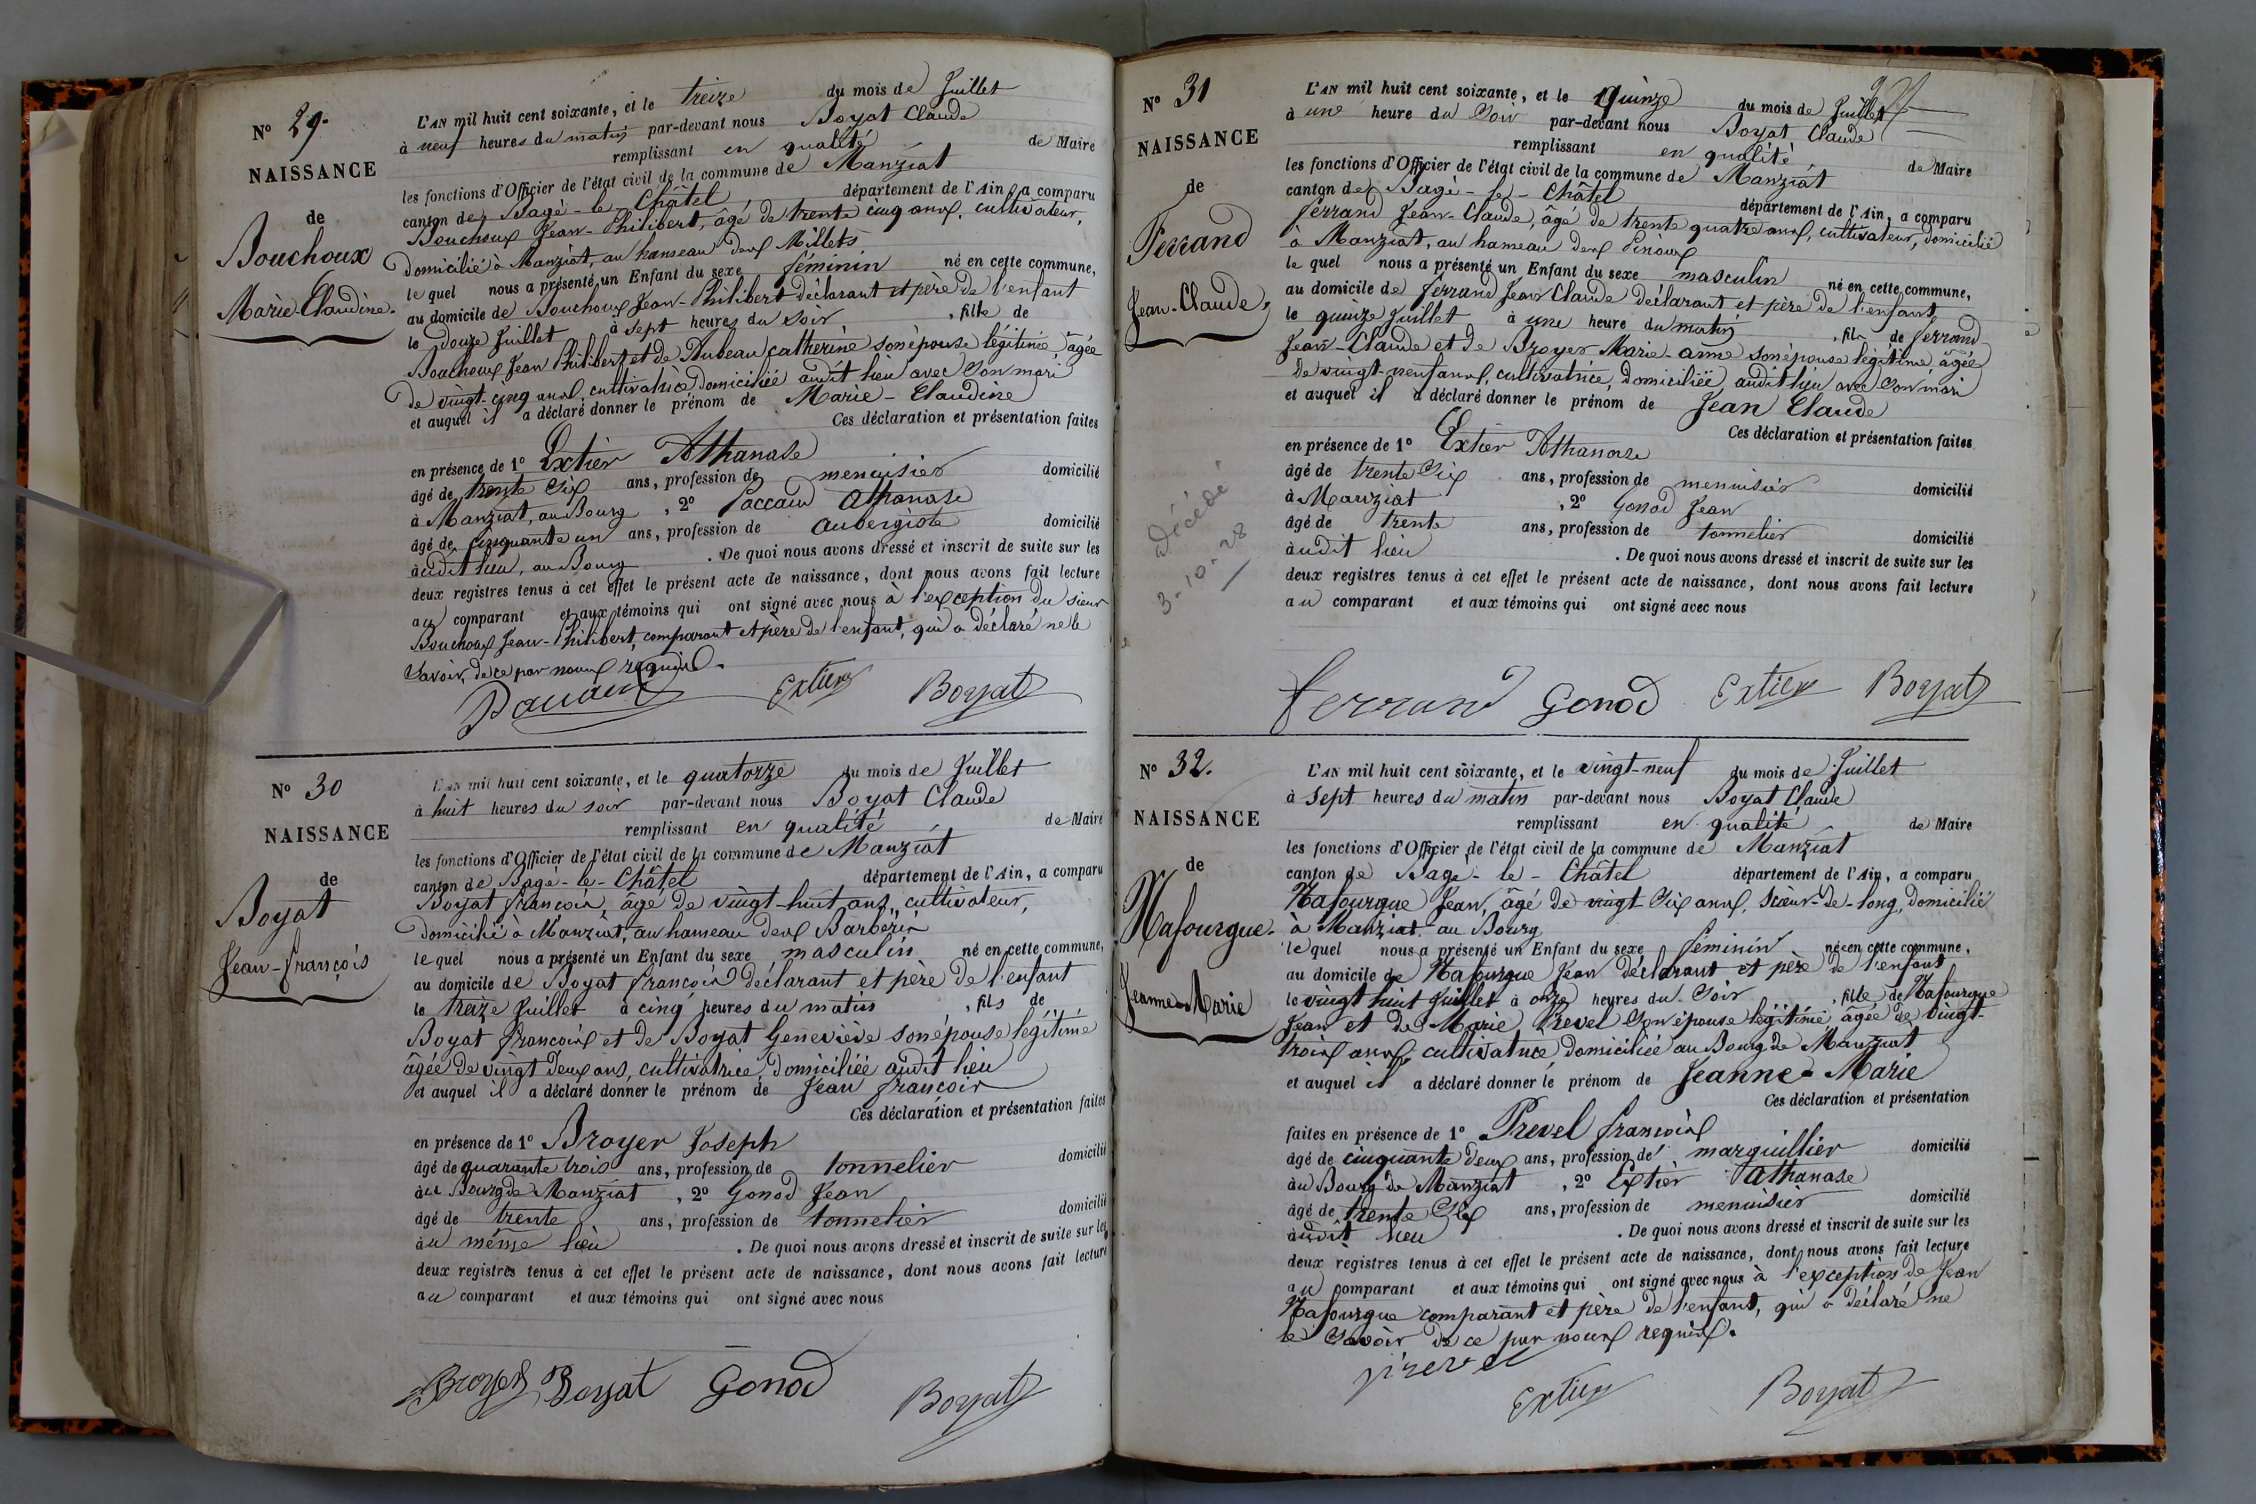 N° 29.
NAISSANCE
de
Bouchoux
Marie-Claudine.
L'AN mil huit cent soixante, et le treize du mois de Juillet
à neuf heures du matin par-devant nous Boyat Claude
remplissant en qualité de Maire
les fonctions d'Officier de l'état civil de la commune de Manziat
canton de Bagé-le-Châtel département de l'Ain, a comparu
Bouchoux Jean-Philibert, âgé de trente cinq ans, cultivateur,
domicilié à Manziat, au hameau des Millets
le quel nous a présenté un Enfant du sexe féminin né en cette commune,
au domicile de Bouchoux Jean-Philibert déclarant et père de l'enfant
le douze Juillet à sept heures du soir , fille de
Bouchoux Jean Philibert et de Dubeau Catherine son épouse légitime âgée
de vingt-cinq ans, cultivatrice domiciliée audit lieu avec son mari
et auquel il a déclaré donner le prénom de Marie-Claudine
Ces déclaration et présentation faites
en présence de 1° Extier Athanase
âgé de trente six ans, profession de menuisier domicilié
à Manziat, au Bourg , 2° Paccaud Athanase
âgé de cinquante un ans, profession de aubergiste domicilié
audit lieu, au Bourg . De quoi nous avons dressé et inscrit de suite sur les
deux registres tenus à cet effet le présent acte de naissance, dont nous avons fait lecture
au comparant et aux témoins qui ont signé avec nous à l'exception du sieur
Bouchoux Jean-Philibert, comparant et père de l'enfant, qui a déclaré ne le
savoir, de ce par nous requis.
Paccaud Extier Boyat
N° 30
NAISSANCE
de
Boyat
Jean-françois
L'AN mil huit cent soixante, et le quatorze du mois de Juillet
à huit heures du soir par-devant nous Boyat Claude
remplissant en qualité de Maire
les fonctions d'Officier de l'état civil de la commune de Manziat
canton de Bagé-le-Châtel département de l'Ain, a comparu
Boyat françois, âgé de vingt-huit ans, cultivateur,
domicilié à Manziat, au hameau des Barberis
le quel nous a présenté un Enfant du sexe masculin né en cette commune,
au domicile de Boyat françois déclarant et père de l'enfant
le treize Juillet à cinq heures du matin , fils de
Boyat françois et de Boyat Geneviève son épouse légitime
âgée de vingt deux ans, cultivatrice, domiciliée audit lieu
et auquel il a déclaré donner le prénom de Jean françois
Ces déclaration et présentation faites
en présence de 1° Broyer Joseph
âgé de quarante trois ans, profession de tonnelier domicilié
au Bourg de Manziat , 2° Gonod Jean
âgé de trente ans, profession de tonnelier domicilié
au même lieu . De quoi nous avons dressé et inscrit de suite sur les
deux registres tenus à cet effet le présent acte de naissance, dont nous avons fait lecture
au comparant et aux témoins qui ont signé avec nous
Broyer Boyat Gonod Boyat
N° 31
NAISSANCE
de
Ferrand
Jean-Claude,
Décédé
3-10-28
L'AN mil huit cent soixante, et le quinze du mois de Juillet
à une heure du soir par-devant nous Boyat Claude
remplissant en qualité de Maire
les fonctions d'Officier de l'état civil de la commune de Manziat
canton de Bagé-le-Châtel département de l'Ain, a comparu
ferrand Jean-Claude, âgé de trente quatre ans, cultivateur, domicilié
à Manziat, au hameau des Pinoux
le quel nous a présenté un Enfant du sexe masculin né en cette commune,
au domicile de ferrand Jean Claude déclarant et père de l'enfant
le quinze Juillet à une heure du matin , fils de ferrand
Jean-Claude et de Broyer Marie-anne son épouse légitime, âgée
de vingt-neuf ans, cultivatrice, domiciliée audit lieu avec son mari
et auquel il a déclaré donner le prénom de Jean Claude
Ces déclaration et présentation faites
en présence de 1° Extier Athanase
âgé de trente six ans, profession de menuisier domicilié
à Manziat , 2° Gonod Jean
âgé de trente ans, profession de tonnelier domicilié
audit lieu . De quoi nous avons dressé et inscrit de suite sur les
deux registres tenus à cet effet le présent acte de naissance, dont nous avons fait lecture
au comparant et aux témoins qui ont signé avec nous
ferrand Gonod Extier Boyat
N° 32.
NAISSANCE
de
Nafourgue.
Jeanne-Marie
L'AN mil huit cent soixante, et le vingt-neuf du mois de Juillet
à sept heures du matin par-devant nous Boyat Claude
remplissant en qualité de Maire
les fonctions d'Officier de l'état civil de la commune de Manziat
canton de Bagé-le-Châtel département de l'Ain, a comparu
Nafourgue Jean, âgé de vingt-six ans, scieur-de-long, domicilié
à Manziat au Bourg
le quel nous a présenté un Enfant du sexe féminin né en cette commune,
au domicile de Nafourgue Jean déclarant et père de l'enfant,
le vingt huit Juillet à onze heures du soir , fille de Nafourgue
Jean et de Marie Prevel son épouse légitime, âgée de vingt-
trois ans, cultivatrice domiciliée au Bourg de Manziat
et auquel il a déclaré donner le prénom de Jeanne-Marie
Ces déclaration et présentation
faites en présence de 1° Prevel françois
âgé de cinquante deux ans, profession de marguillier domicilié
au Bourg de Manziat , 2° Extier Athanase
âgé de trente six ans, profession de menuisier domicilié
audit lieu . De quoi nous avons dressé et inscrit de suite sur les
deux registres tenus à cet effet le présent acte de naissance, dont nous avons fait lecture
au comparant et aux témoins qui ont signé avec nous à l'exception de Jean
Nafourgue comparant et père de l'enfant, qui a déclaré ne
le savoir de ce par nous requis.
prevel Extier Boyat